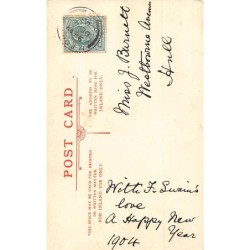 POST CARD
THE ADDRESS TO BE
WRITTEN HERE FOR
INLAND ONLY.
THIS SPACE MAY BE USED FOR PRINTED
OR WRITTEN MATTER
FOR INLAND USE ONLY.
Miss J. Burnett
Westbourne Avenue
Hull
With F. Swain's
love
A Happy New
Year
1904